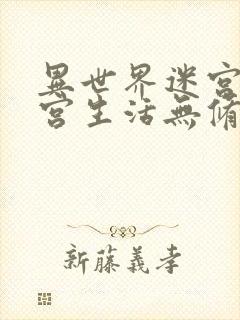 異世界迷宮
宮生活無脩
新藤義孝